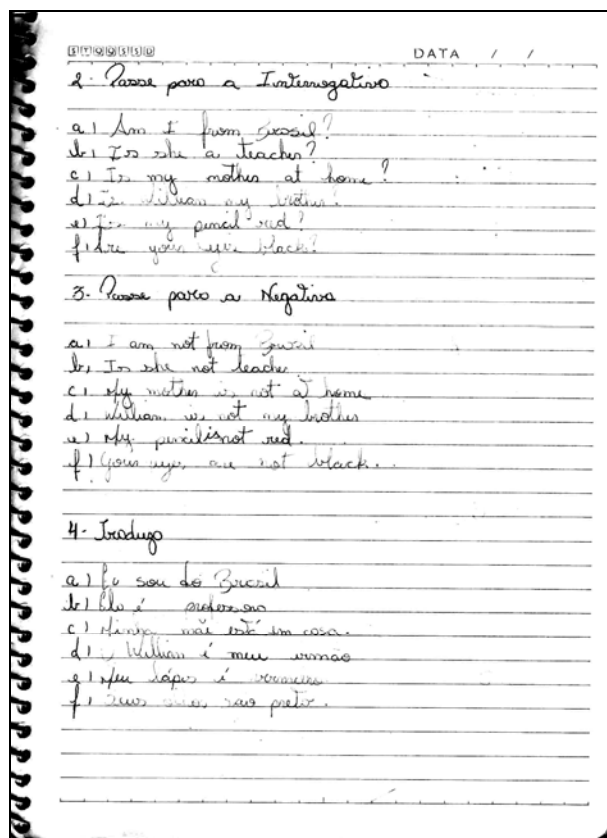 STQQSSD
DATA / /
2. Passe para a Interrogativa
a) Am I from Brasil?
b) Is she a teacher?
c) Is my mother at home?
d) Is William my brother.
e) Is my pencil red?
f) Are your eyes black?
3. Passe para a Negativa
a) I am not from Brazil
b) Is she not teacher
c) My mother is not at home
d) William is not my brother
e) My pencil is not red.
f) Your eyes are not black.
4- Traduza
a) Eu sou do Brasil
b) Ela é professora
c) Minha mãe está em casa.
d) William é meu irmão
e) Meu lápis é
f) Seus são preto.